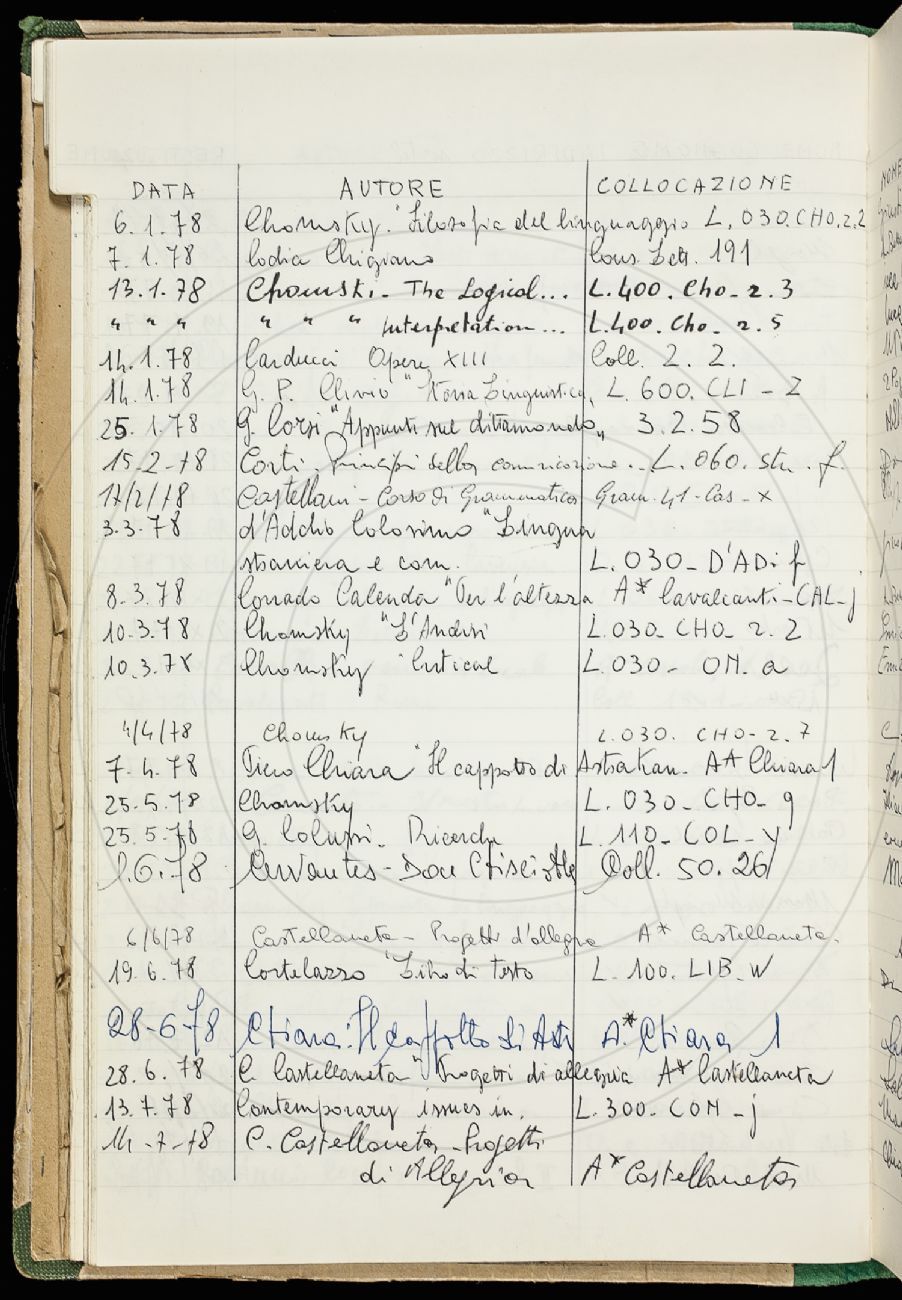 DATA AUTORE COLLOCAZIONE
6.1.78 Chomsky. "Filosofia del linguaggio L. 030. CHO.2.2
7.1.78 Codice Chigiano Cons. Lett. 191
13.1.78 Chomski - The Logical... L.400. Cho - 2.3
" " " " " " Interpretation... L.400. Cho - 2.5
14.1.78 Carducci Opere XIII Coll. 2.2.
14.1.78 G. P. Clivio "Storia Linguistica, L. 600. CLI - 2
25.1.78 G. Corsi "Appunti sul dittamondo" 3.2.58
15-2-78 Corti. Principi della comunicazione.. L. 060. str. f.
17/2/78 Castellani - Corso di Grammatica Gram. 41 - Cas - x
3.3.78 d'Addio Colosimo "Lingua
straniera e com. L. 030 - D'ADi f
8.3.78 Corrado Calenda "Per l'altezza A* Cavalcanti - CAL - j
10.3.78 Chomsky "L'Analisi L.030 - CHO - 2.2
10.3.78 Chomsky L.030 - OM. a
4/4/78 Chomsky L.030. CHO-2.7
7.4.78 Piero Chiara "Il cappotto di Astrakan. A* Chiara 1
25.5.78 Chomsky L. 030 - CHO - g
25.5.78 G. Colussi. Ricerche L. 110 - COL - y
1.6.78 Cervantes - Don Chisciotte Coll. 50. 26
6/6/78 Castellaneta - Progetti d'allegria A* Castellaneta.
19.6.78 Cortelazzo "Libro di testo L. 100. LIB. W
28-6-78 Chiara: Il cappotto di Astr A* Chiara 1
28.6.78 C. Castellaneta "Progetti di allegria A* Castellaneta
13.7.78 Contemporary issues in. L.300 - CON - j
14-7-78 C. Castellaneta - Progetti
di Allegria A* Castellaneta